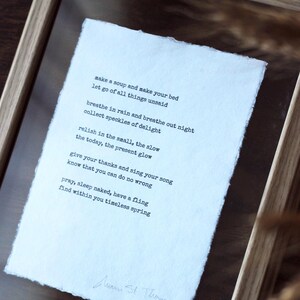 make a soup and make your bed
let go of all things unsaid
breathe in rain and breathe out night
collect speckles of delight
relish in the small, the slow
the today, the present glow
give your thanks and sing your song
know that you can do no wrong
pray, sleep naked, have a fling
find within you timeless spring